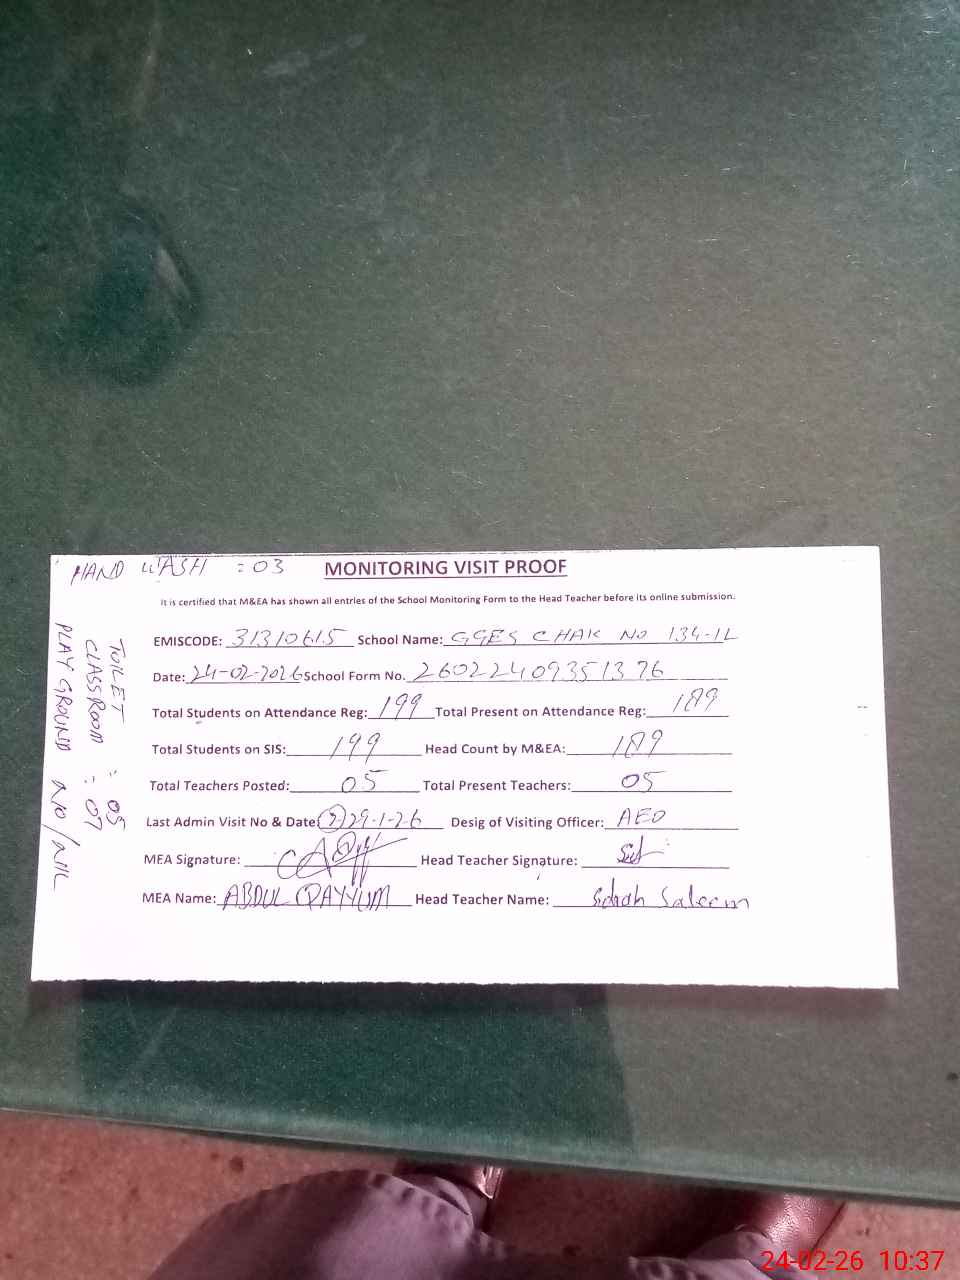 HAND WASH :03 MONITORING VISIT PROOF
It is certified that M&EA has shown all entries of the School Monitoring Form to the Head Teacher before its online submission.
EMISCODE: 31310615 School Name: GGES CHAK NO 134-1L
Date: 24-02-2026 School Form No. 260224093513 76
Total Students on Attendance Reg: 199 Total Present on Attendance Reg: 189
Total Students on SIS: 199 Head Count by M&EA: 189
Total Teachers Posted: 05 Total Present Teachers: 05
Last Admin Visit No & Date: (2) 29-1-26 Desig of Visiting Officer: AEO
MEA Signature: Head Teacher Signature:
MEA Name: ABDUL QAYYUM Head Teacher Name: Saleem
TOILET : 05
CLASSROOM : 07
PLAY GROUND NO/NIL
24-02-26 10:37